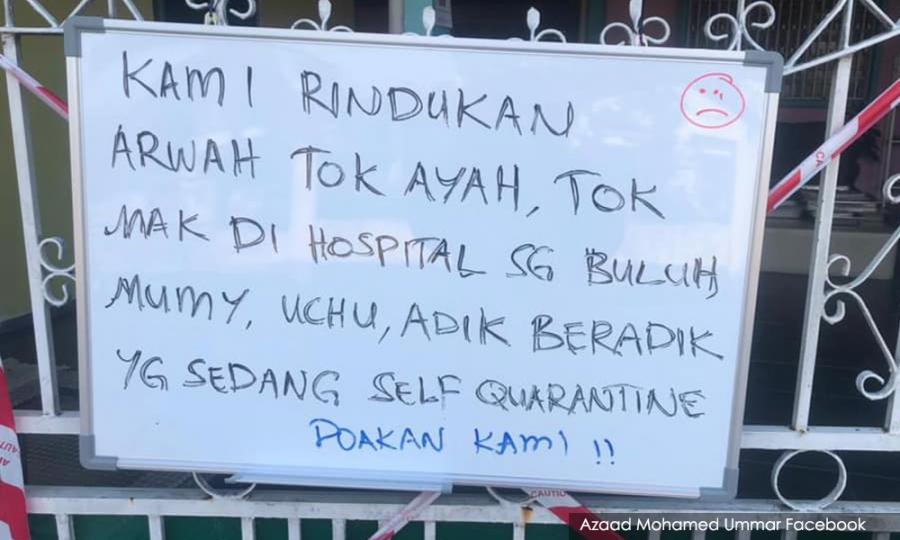 KAMI RINDUKAN
ARWAH TOK AYAH, TOK
MAK DI HOSPITAL SG BULUH,
MUMY, UCHU, ADIK BERADIK
YG SEDANG SELF QUARANTINE
DOAKAN KAMI !!
CAUTIO
Azaad Mohamed Ummar Facebook